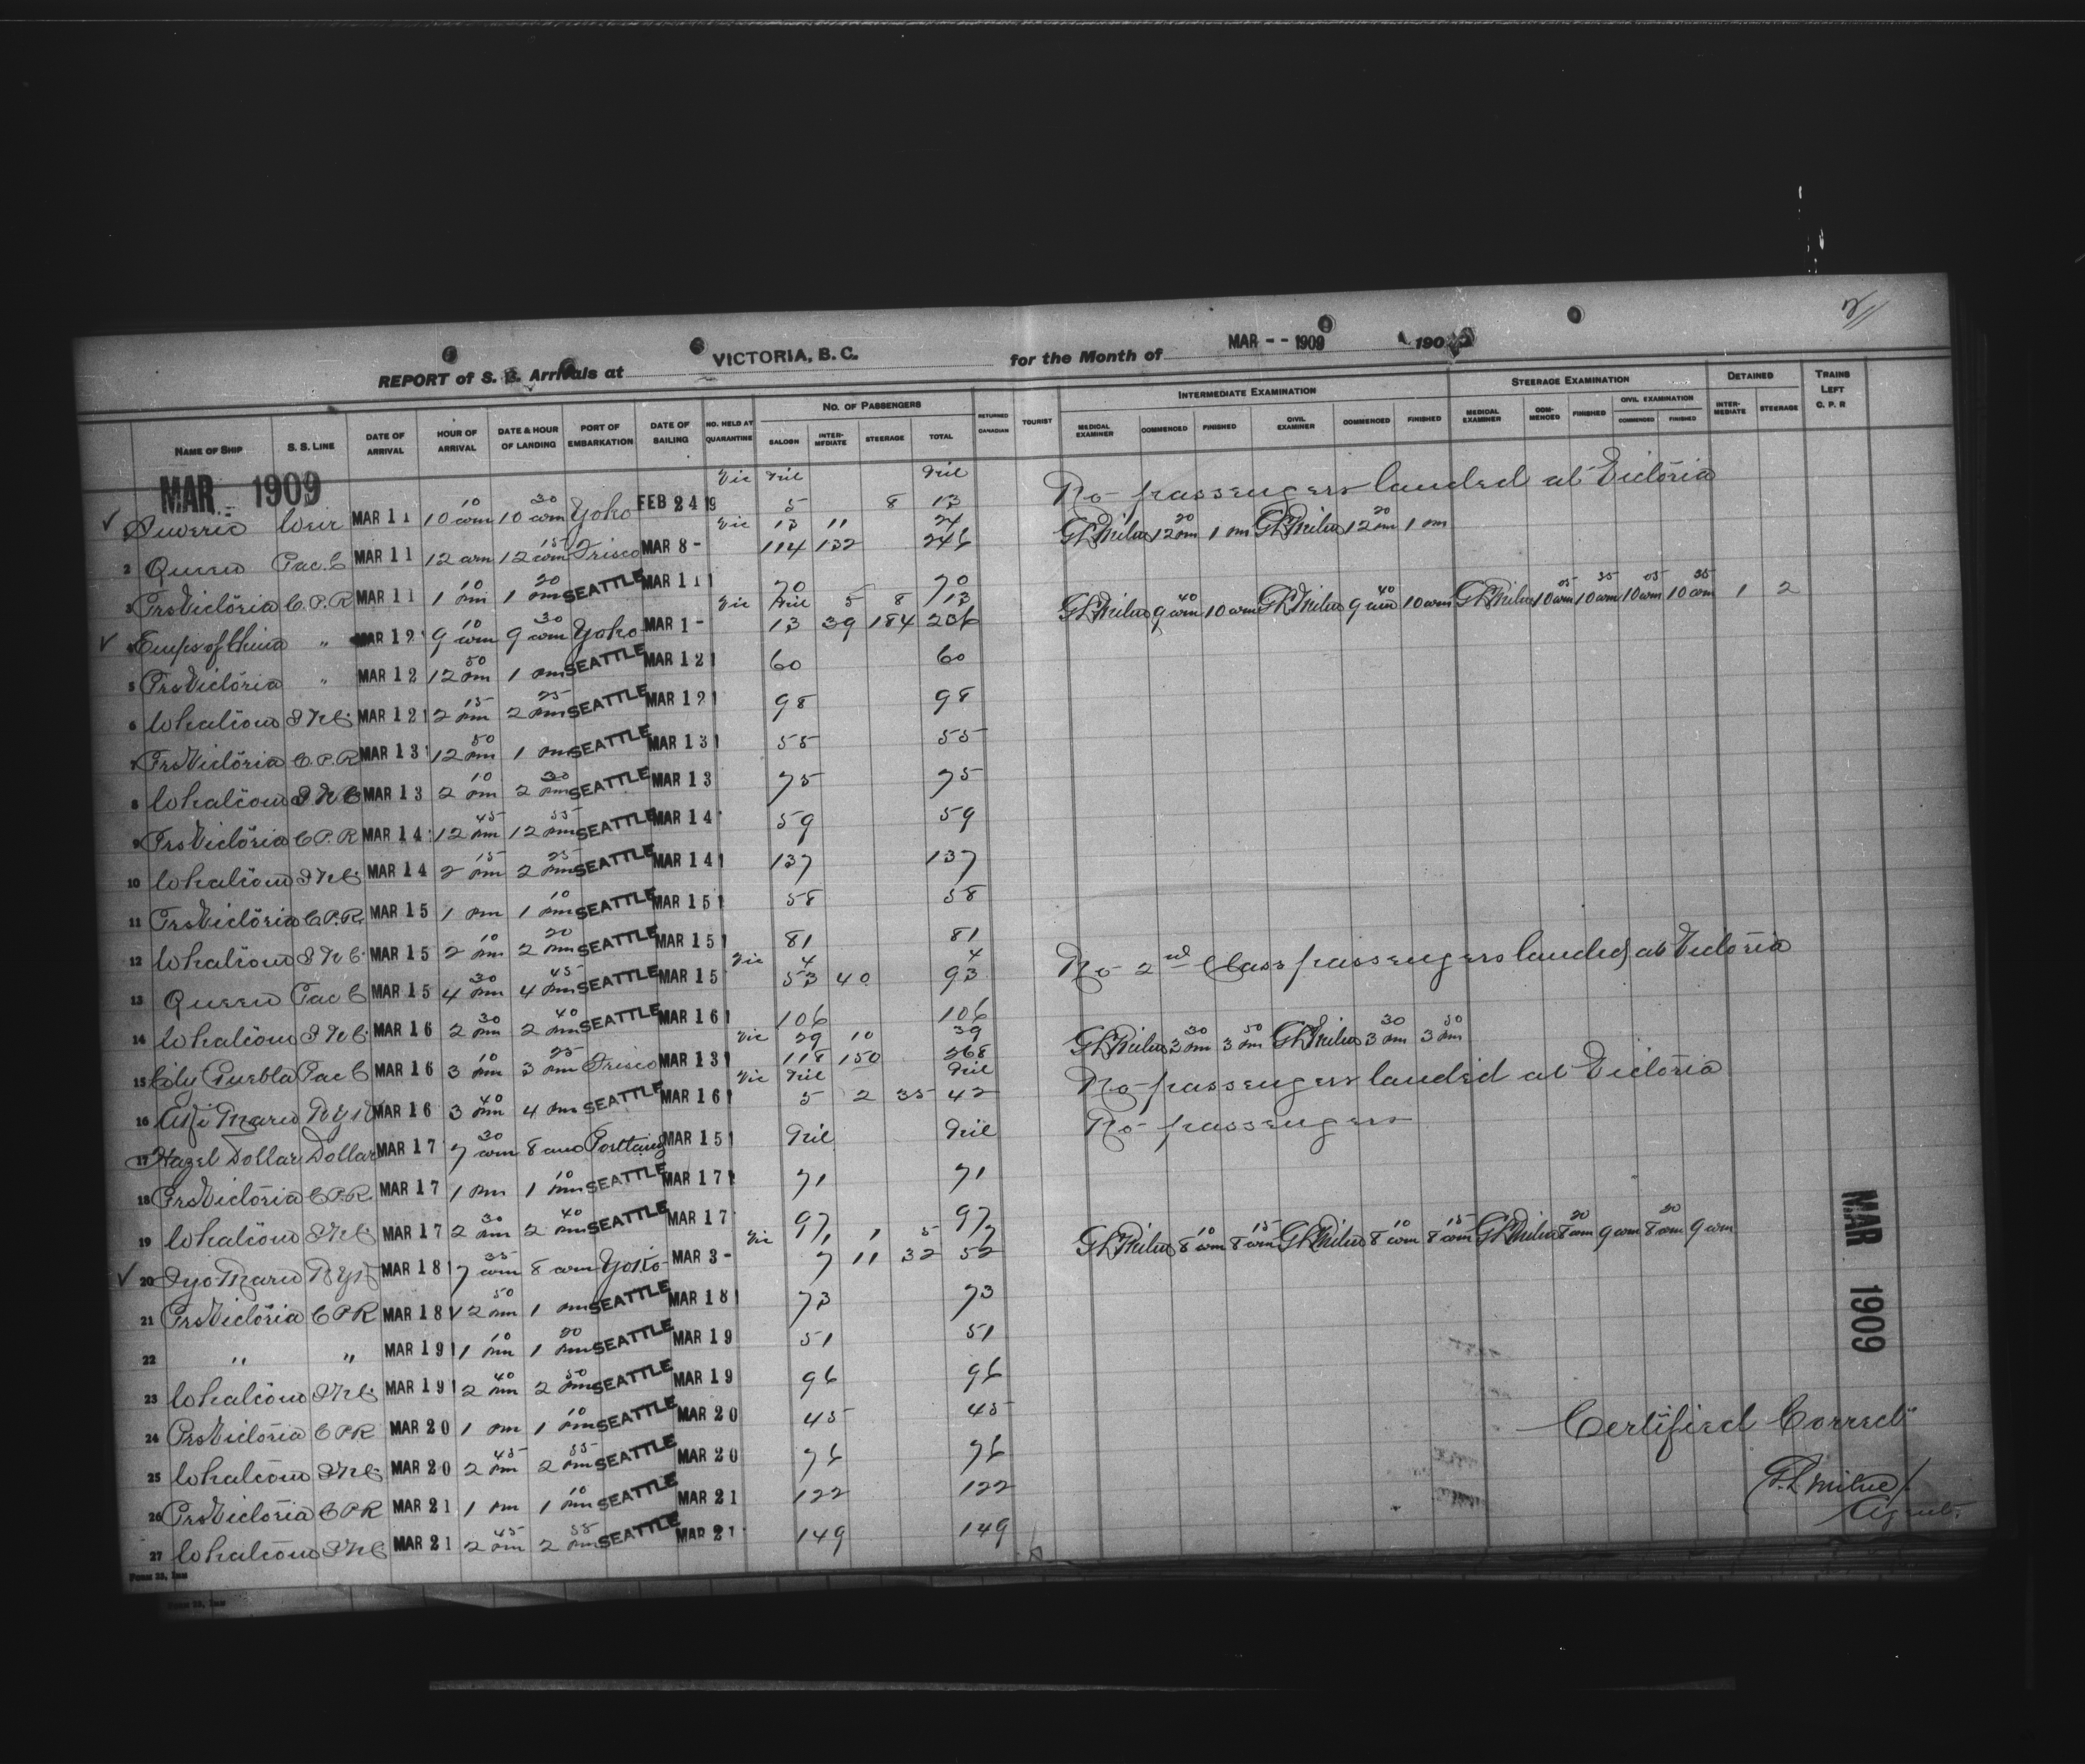 2
REPORT of S. S. Arrivals at VICTORIA, B. C. for the Month of MAR -- 1909 190
NAME OF SHIP S. S. LINE DATE OF ARRIVAL HOUR OF ARRIVAL DATE & HOUR OF LANDING PORT OF EMBARKATION DATE OF SAILING NO. HELD AT QUARANTINE NO. OF PASSENGERS SALOON INTER-MEDIATE STEERAGE TOTAL RETURNED CANADIAN TOURIST INTERMEDIATE EXAMINATION MEDICAL EXAMINER COMMENCED FINISHED CIVIL EXAMINER COMMENCED FINISHED STEERAGE EXAMINATION MEDICAL EXAMINER COM-MENCED FINISHED CIVIL EXAMINATION COMMENCED FINISHED DETAINED INTER-MEDIATE STEERAGE TRAINS LEFT C. P. R
MAR 1909
Vic Nil Nil No passengers landed at Victoria
Suveric Weir MAR 11 10 10 am 10 30 am Yoko FEB 24 9 5 8 13
Vic 13 11 24 GL Milne 12 20 pm 1 pm GL Milne 12 20 pm 1 pm
2 Queen Pac. C MAR 11 12 am 12 15 am Frisco MAR 8 - 114 132 246
3 Prs Victoria C. P. R MAR 11 1 10 pm 1 20 pm SEATTLE MAR 11 70 70
Vic Nil 5 8 13 GL Milne 9 40 am 10 am GL Milne 9 40 am 10 am GL Milne 10 05 am 10 35 am 10 05 am 10 35 am 1 2
4 Emps of China " MAR 12 9 10 am 9 30 am Yoko MAR 1 - 13 39 184 236
5 Prs Victoria " MAR 12 12 50 pm 1 pm SEATTLE MAR 12 60 60
6 Whatcom I N C. MAR 12 2 15 pm 2 25 pm SEATTLE MAR 12 98 98
7 Prs Victoria C. P. R MAR 13 12 50 pm 1 pm SEATTLE MAR 13 55 55
8 Whatcom I N C MAR 13 2 10 pm 2 20 pm SEATTLE MAR 13 75 75
9 Prs Victoria C P. R MAR 14 12 45 pm 12 55 pm SEATTLE MAR 14 59 59
10 Whatcom I N C. MAR 14 2 15 pm 2 25 pm SEATTLE MAR 14 137 137
11 Prs Victoria C. P. R. MAR 15 1 pm 1 10 pm SEATTLE MAR 15 58 58
12 Whatcom I N C. MAR 15 2 10 pm 2 20 pm SEATTLE MAR 15 81 81
Vic 4 4 No 2nd Class passengers landed at Victoria
13 Queen Pac C MAR 15 4 30 pm 4 45 pm SEATTLE MAR 15 53 40 93
14 Whatcom I N C. MAR 16 2 30 pm 2 40 pm SEATTLE MAR 16 106 106
Vic 29 10 39 GL Milne 3 30 pm 3 50 pm GL Milne 3 30 pm 3 50 pm
15 City Puebla Pac C MAR 16 3 10 pm 3 25 pm Frisco MAR 13 118 150 268
Vic Nil Nil No passengers landed at Victoria
16 Aki Maru N Y K MAR 16 3 40 pm 4 pm SEATTLE MAR 16 5 2 35 42
17 Hazel Dollar Dollar MAR 17 7 30 am 8 am Portland MAR 15 Nil Nil No passengers
18 Prs Victoria C P. R. MAR 17 1 pm 1 10 pm SEATTLE MAR 17 71 71
19 Whatcom I N C. MAR 17 2 30 pm 2 40 pm SEATTLE MAR 17 97 97
Vic 1 1 5 7 GL Milne 8 10 am 8 15 am GL Milne 8 10 am 8 15 am GL Milne 8 20 am 9 am 8 20 am 9 am
20 Iyo Maru N Y K MAR 18 7 35 am 8 am Yoko MAR 3 - 7 11 32 52
21 Prs Victoria C P R MAR 18 12 50 pm 1 pm SEATTLE MAR 18 73 73
22 " " MAR 19 1 10 pm 1 20 pm SEATTLE MAR 19 51 51
23 Whatcom I N C. MAR 19 2 40 pm 2 50 pm SEATTLE MAR 19 96 96
24 Prs Victoria C P R MAR 20 1 pm 1 10 pm SEATTLE MAR 20 45 45
25 Whatcom I N C MAR 20 2 45 pm 2 55 pm SEATTLE MAR 20 76 76
26 Prs Victoria C P R MAR 21 1 pm 1 10 pm SEATTLE MAR 21 122 122
27 Whatcom I N C MAR 21 2 45 pm 2 55 pm SEATTLE MAR 21 149 149
MAR 1909
Certified Correct
G. L Milne
Agent.
FORM 23, IMM
FORM 23, IMM